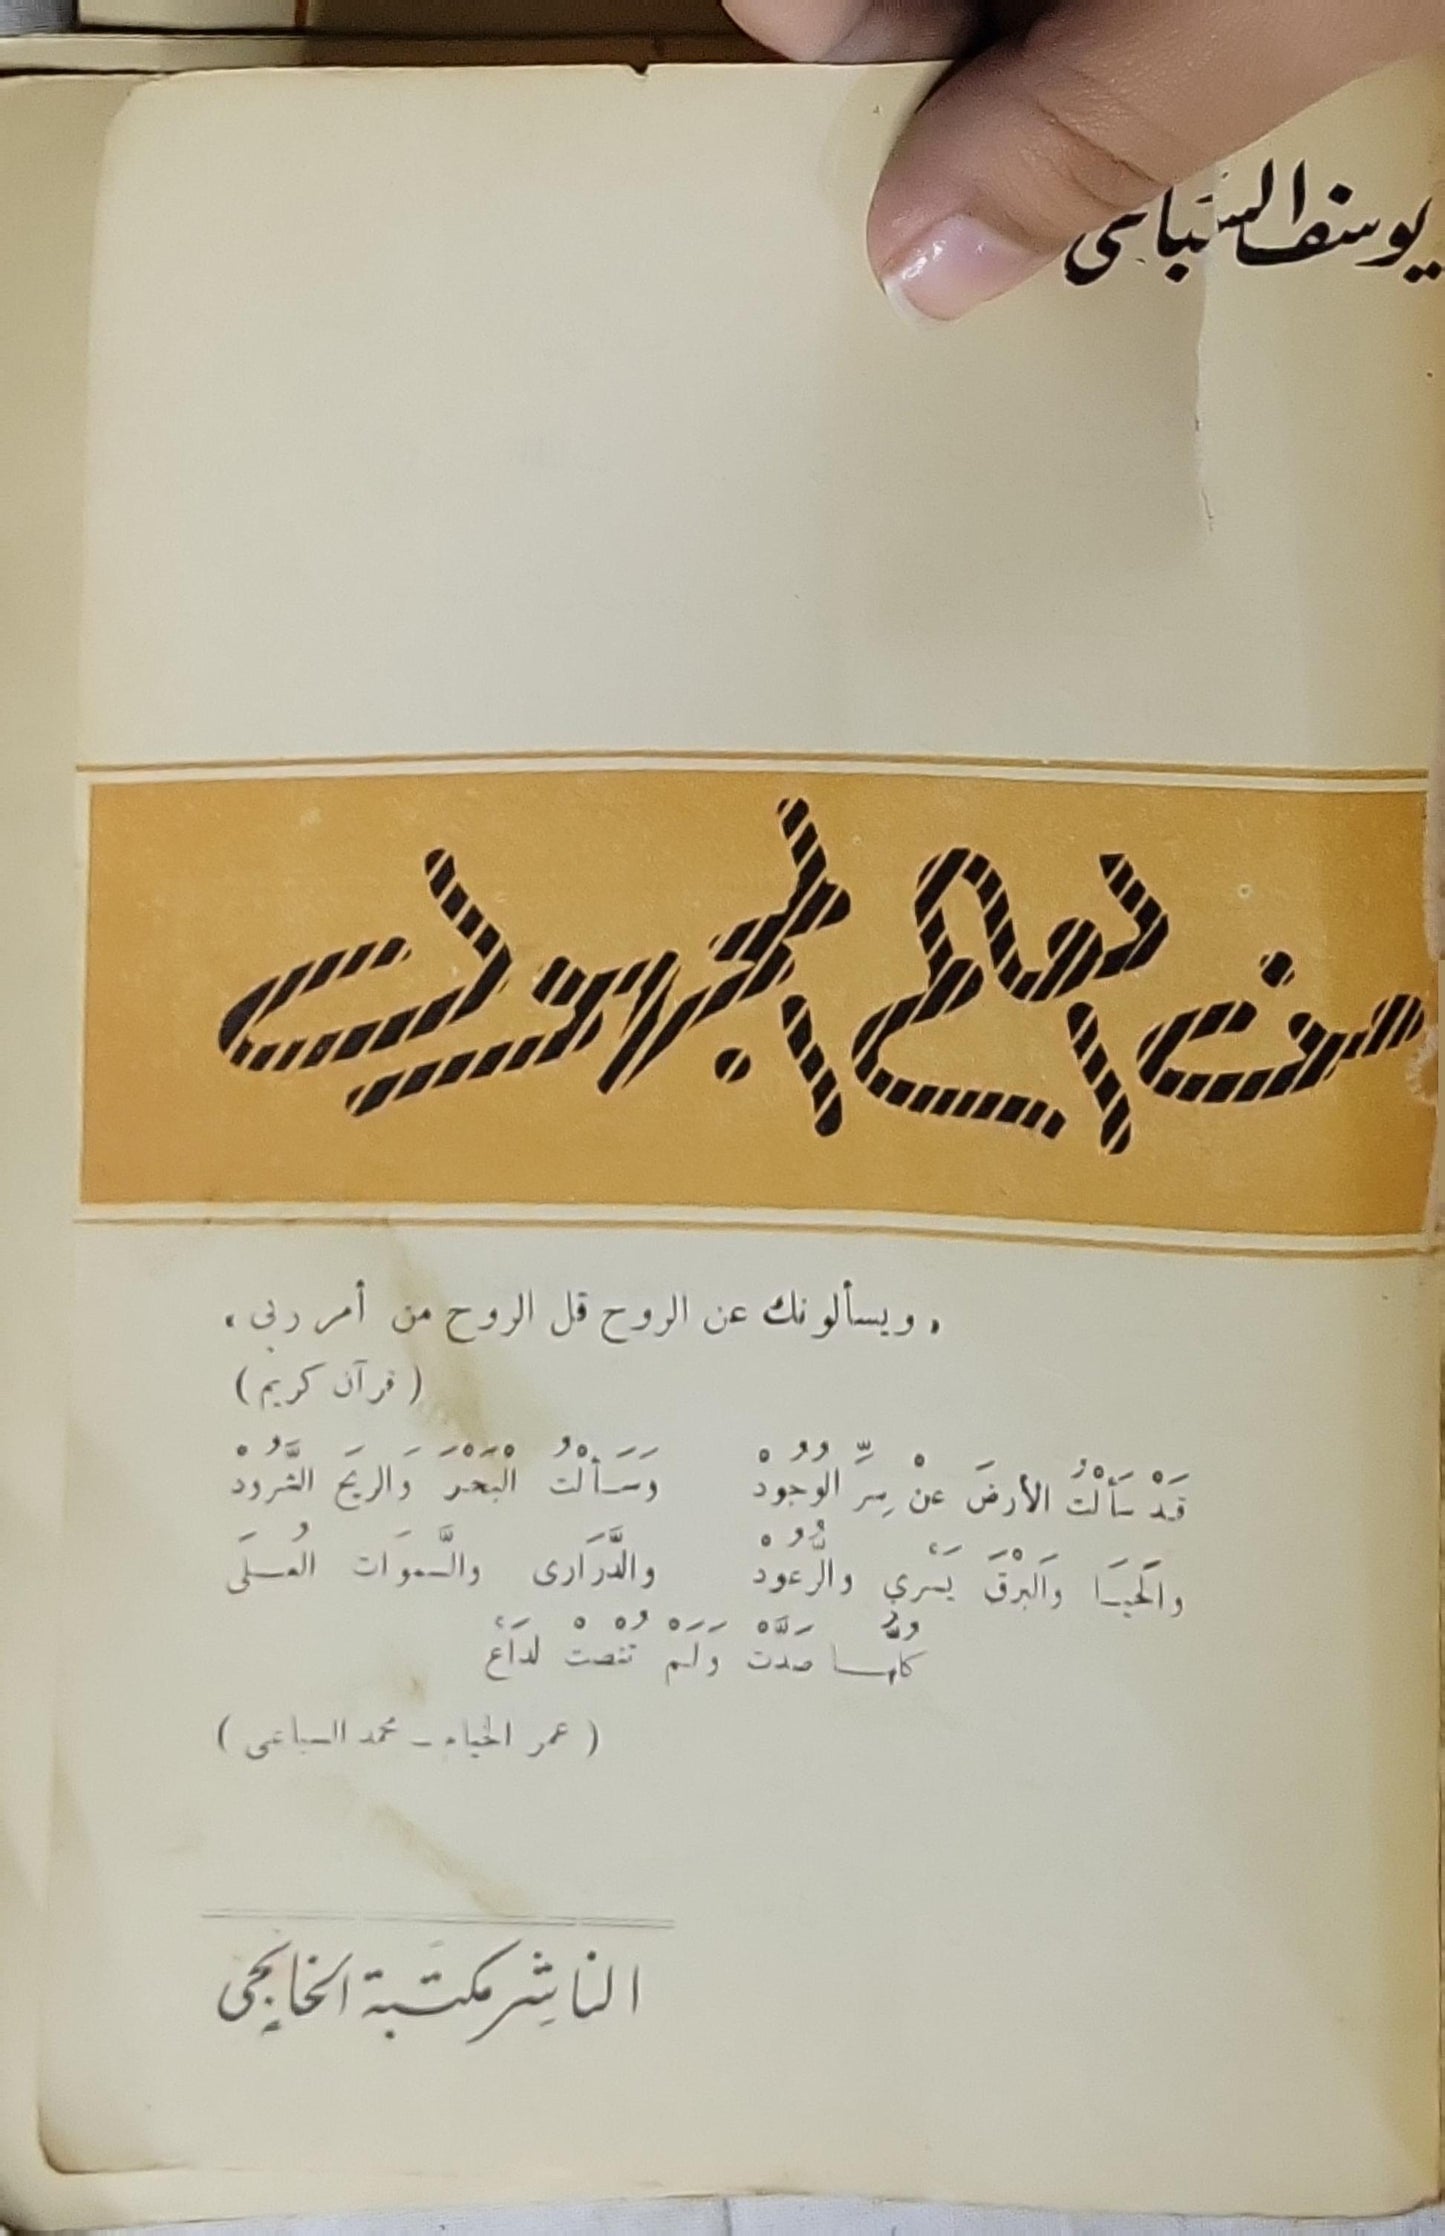 يوسف السباعى
من العالم المجهول
« ويسألونك عن الروح قل الروح من أمر ربى »
( قرآن كريم )
قَدْ سَأَلْتُ الأرضَ عنْ سِرِّ الوُجُودْ وَسَأَلْتُ الْبَحْرَ وَالريحَ الشَّرُودْ
والحَيَا وَالبَرْقَ يَسْرِي والرُّعُودْ والدَّرَارى والسَّمَوَات العُلَى
كلُّهَا صَدَّتْ وَلَمْ تُنْصتْ لدَاعْ
( عمر الخيام – محمد السباعى )
الناشِر مكتبة الخانجى